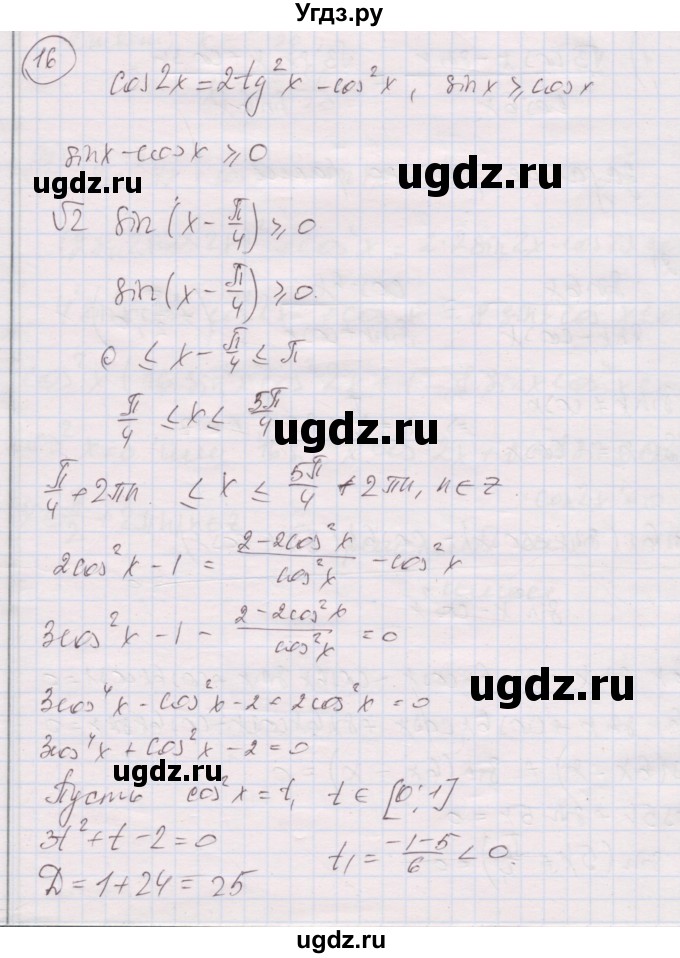 Угдз.ру
16
cos2x = 2tg²x - cos²x, sinx ≥ cosx
sinx - cosx ≥ 0
ugdz.ru ugdz.ru
√2 sin(x - π/4) ≥ 0
sin(x - π/4) ≥ 0.
0 ≤ x - π/4 ≤ π
π/4 ≤ x ≤ 5π/4
ugdz.ru
π/4 + 2πn ≤ x ≤ 5π/4 + 2πn, n ∈ Z.
2cos²x - 1 = (2 - 2cos²x)/cos²x - cos²x
3cos²x - 1 - (2 - 2cos²x)/cos²x = 0
ugdz.ru
3cos⁴x - cos²x - 2 + 2cos²x = 0
3cos⁴x + cos²x - 2 = 0
ugdz.ru
Пусть cos²x = t, t ∈ [0; 1]
3t² + t - 2 = 0
t₁ = (-1-5)/6 < 0.
D = 1 + 24 = 25
ugdz.ru